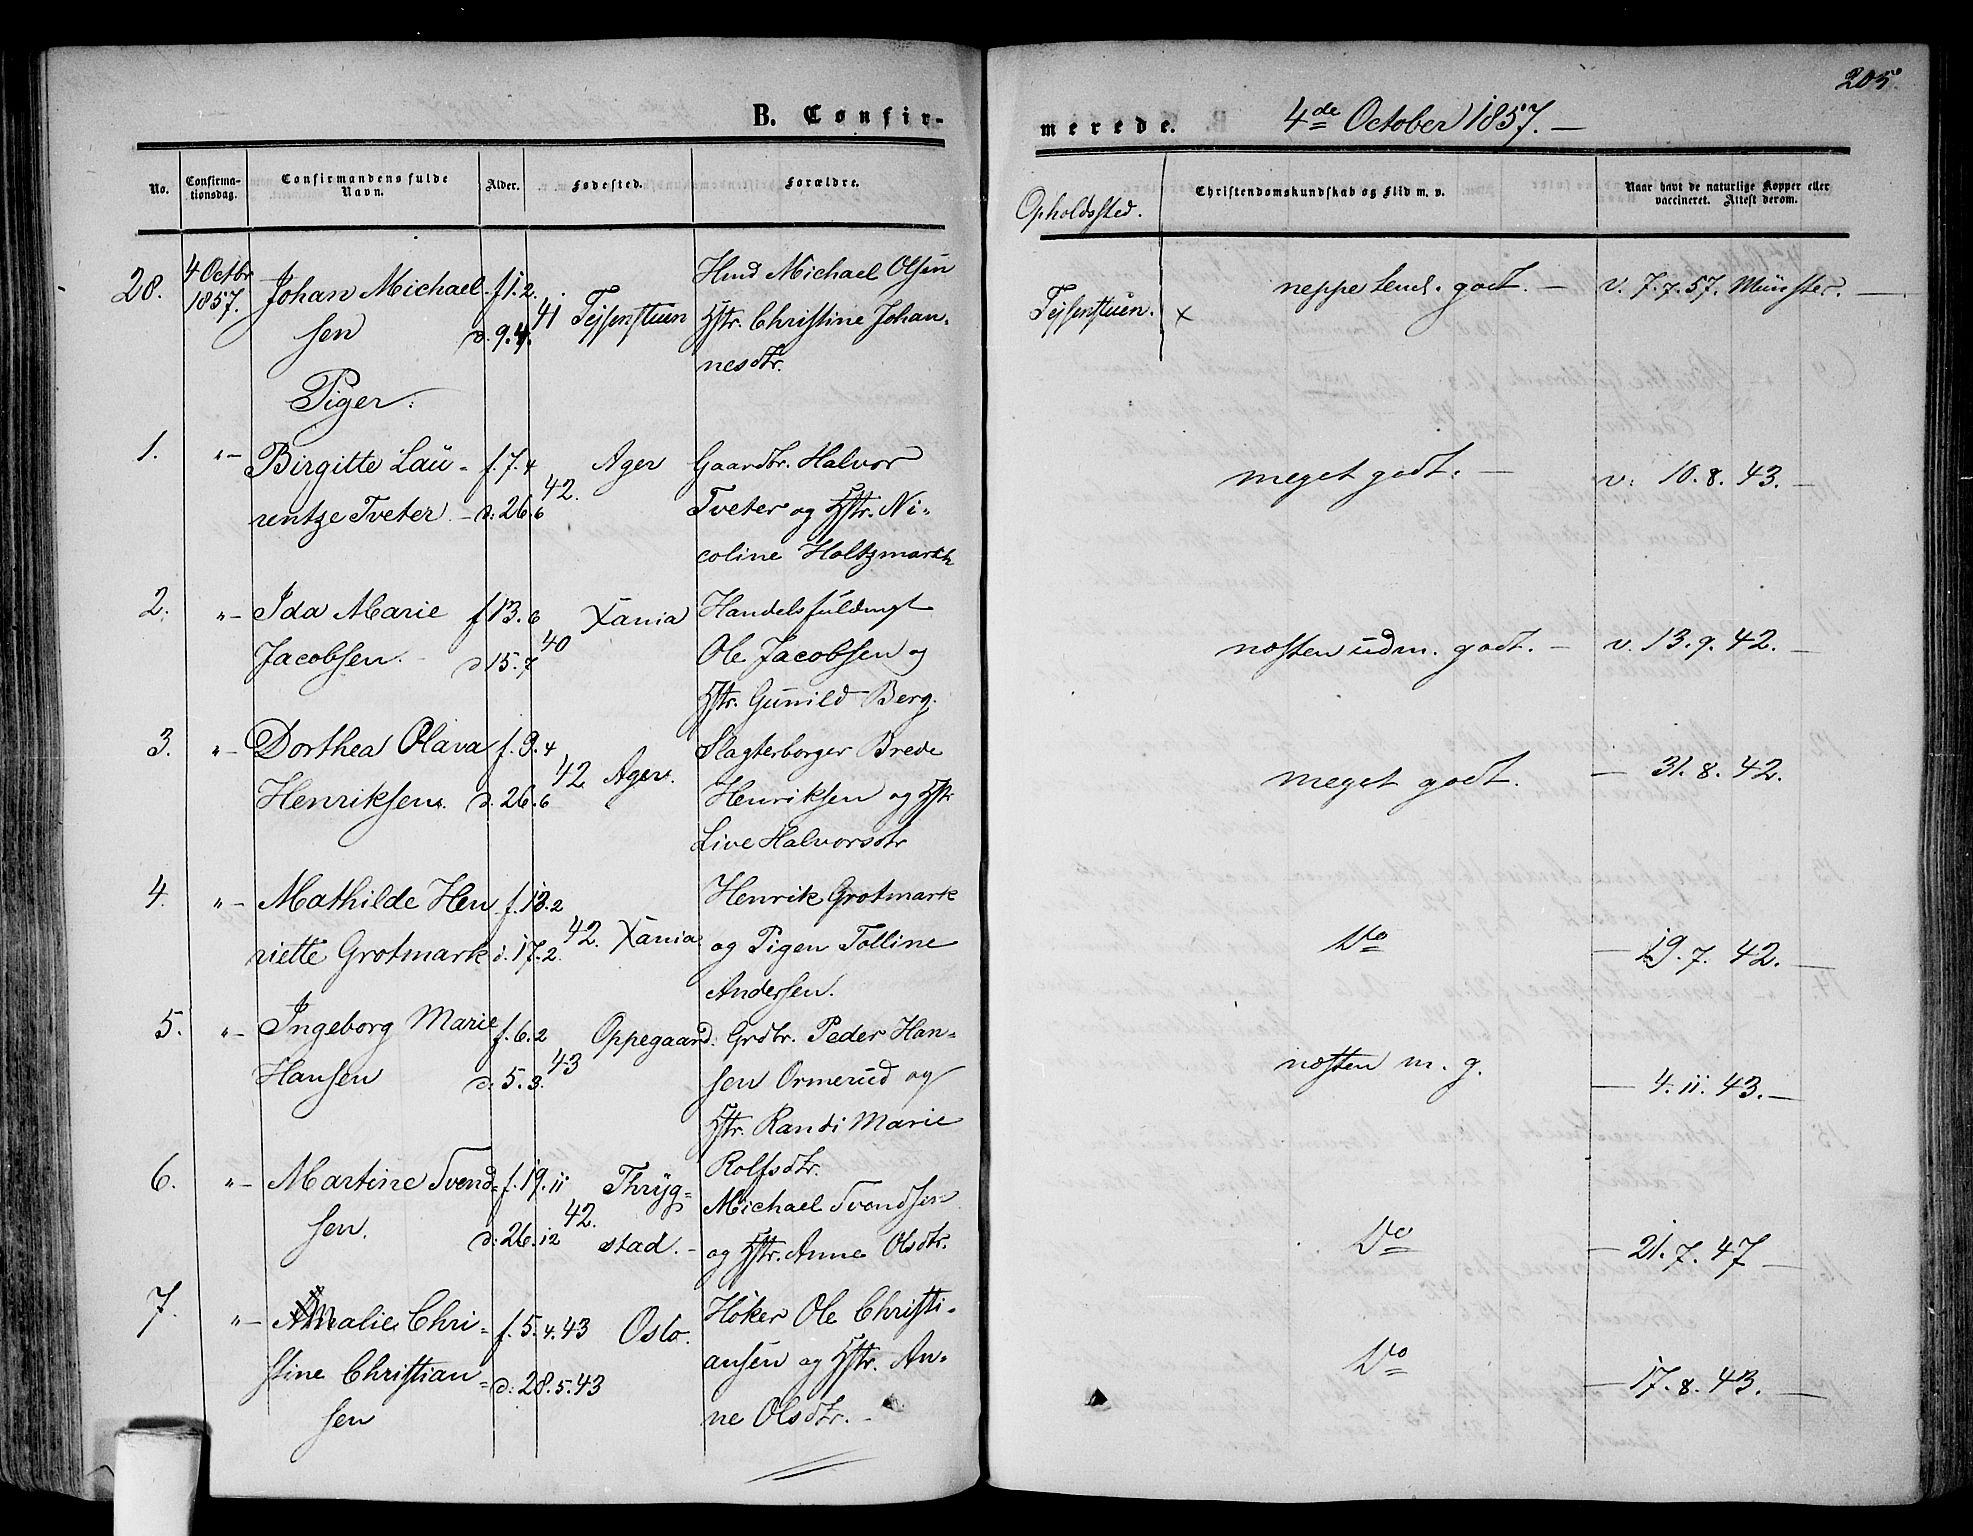 205.
B. Confir-
merede. 4de October 1857. —
No.
Confirma-
tionsdag.
Confirmandens fulde
Navn.
Alder.
Fødested.
Forældre.
Opholdssted.
Christendomskundskab og Flid m. v.
Naar havt de naturlige Kopper eller
vaccineret. Attest derom.
28. 4 Octbr
1857.
Johan Michael-
sen
f. 1. 2.
d. 9. 4. 41
Tejsenstuen
Hmd Michael Olsen
Hstr. Christine Johan-
nesdtr.
Tejsenstuen. x
neppe tends. godt. —
v. 7. 7. 57. Münster. —
Piger.
1. "— Birgitte Lau-
rentze Tveter —
f. 7. 4
d. 26. 6 42.
Ager
Gaardbr. Halvor
Tveter og Hstr. Ni-
coline Holtzmark
meget godt. —
v. 10. 8. 43. —
2. "— Ida Marie
Jacobsen. —
f 13. 6
d 15. 7 40
Xania
Handelsfuldmgt
Ole Jacobsen og
Hstr. Gunild Berg.
næsten udm. godt. —
v. 13. 9. 42. —
3. "— Dorthea Olava
Henriksen.
f. 9. 4
d. 26. 6 42.
Ager.
Slagterborger Brede
Henriksen og Hstr
Live Halvorsdtr
meget godt.
— 31. 8. 42.
4. "— Mathilde Hen
riette Grotmark
f. 13. 2
d. 17. 2. 42.
Xania
Henrik Grotmark
og Pigen Tolline
Andersen.
Do
— 19. 7. 42. —
5. "— Ingeborg Marie
Hansen
f. 6. 2
d. 5. 3. 43
Oppegaard.
Grdbr. Peder Han-
sen Ormerud og
Hstr. Randi Marie
Rolfsdtr.
næsten m. g.
— 4. 11. 43. —
6. "— Martine Svend-
sen.
f. 19. 11
d. 26. 12 42.
Thryg-
stad. —
Michael Svendsen
og Hstr. Anne Olsdtr.
Do
— 21. 7. 47 —
7. "— Amalie Chri-
stine Christian-
sen
f. 5. 4. 43
d. 28. 5. 43
Oslo.
Høker Ole Christi-
ansen og Hstr. An-
ne Olsdtr. —
Do
— 17. 8. 43. —